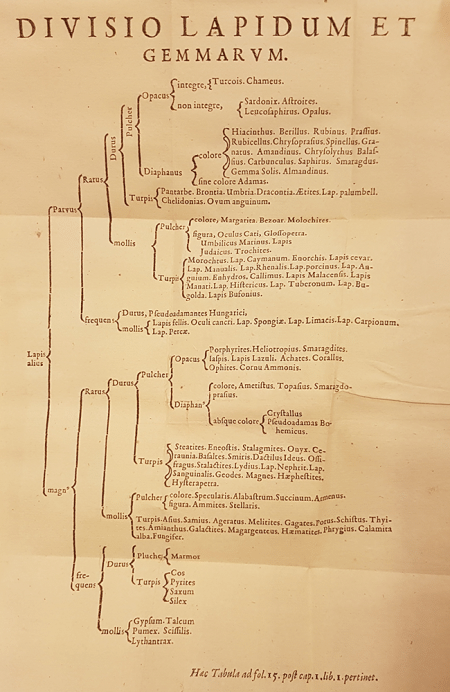 DIVISIO LAPIDUM ET
GEMMARVM.
Lapis alius
Parvus
Rarus
Durus
Pulcher
Opacus
integre, Turcois. Chameus.
non integre,
Sardonix. Astroites.
Leucosaphirus. Opalus.
Diaphanus
colore
Hiacinthus. Berillus. Rubinus. Prassius.
Rubicellus. Chrysoprasius. Spinellus. Gra-
natus. Amandinus. Chrysolythus Balas-
sius. Carbunculus. Saphirus. Smaragdus.
Gemma Solis. Almandinus.
sine colore Adamas.
Turpis
Pantarbe. Brontia. Umbria. Dracontia. Ætites. Lap. palumbell.
Chelidonias. Ovum anguinum.
mollis
Pulcher
colore, Margarita. Bezoar. Molochites.
figura, Oculus Cati, Glossopetra.
Umbilicus Marinus. Lapis
Judaicus. Trochites.
Turpis
Morochtus. Lap. Caymanum. Enorchis. Lapis cevar.
Lap. Manualis. Lap. Rhenalis. Lap. porcinus. Lap. An-
guium. Enhydros. Callimus. Lapis Malacensis. Lapis
Manati. Lap. Histericus. Lap. Tuberonum. Lap. Bu-
golda. Lapis Bufonius.
frequens
Durus, Pseudoadamantes Hungarici,
mollis
Lapis fellis. Oculi cancri. Lap. Spongiæ. Lap. Limacis. Lap. Carpionum.
Lap. Percæ.
magn⁹
Rarus
Durus
Pulcher
Opacus
Porphyrites. Heliotropius. Smaragdites.
Iaspis. Lapis Lazuli. Achates. Corallus.
Ophites. Cornu Ammonis.
Diaphan⁹
colore, Ametistus. Topasius. Smaragdo-
prasius.
absque colore
Crystallus
Pseudoadamas Bo-
hemicus.
Turpis
Steatites. Eneostis. Stalagmites. Onyx. Ce-
raunia. Basaltes. Smiris. Dactilus Ideus. Ossi-
fragus. Stalactites. Lydius. Lap. Nephrit. Lap.
Sanguinalis. Geodes. Magnes. Hæphestites.
Hysterapetra.
mollis
Pulcher
colore. Specularis. Alabastrum. Succinum. Armenus.
figura. Ammites. Stellaris.
Turpis. Asius. Samius. Ageratus. Melitites. Gagates. Porus. Schistus. Thyi-
tes. Amianthus. Galactites. Magargenteus. Hæmatites. Phrygius. Calamita
alba. Fungifer.
fre-
quens
Durus
Pluche
Marmor
Turpis
Cos
Pyrites
Saxum
Silex
mollis
Gypsum. Talcum
Pumex. Scissilis.
Lythantrax.
Hac Tabula ad fol. 15. post cap. 1. lib. 1. pertinet.